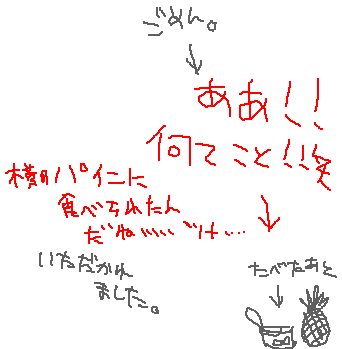 ごめん。
ああ!!
何てこと!!笑
横のパインに
食べられたん
だねいいいつけ…
いただかれ
ました。
たべたあと